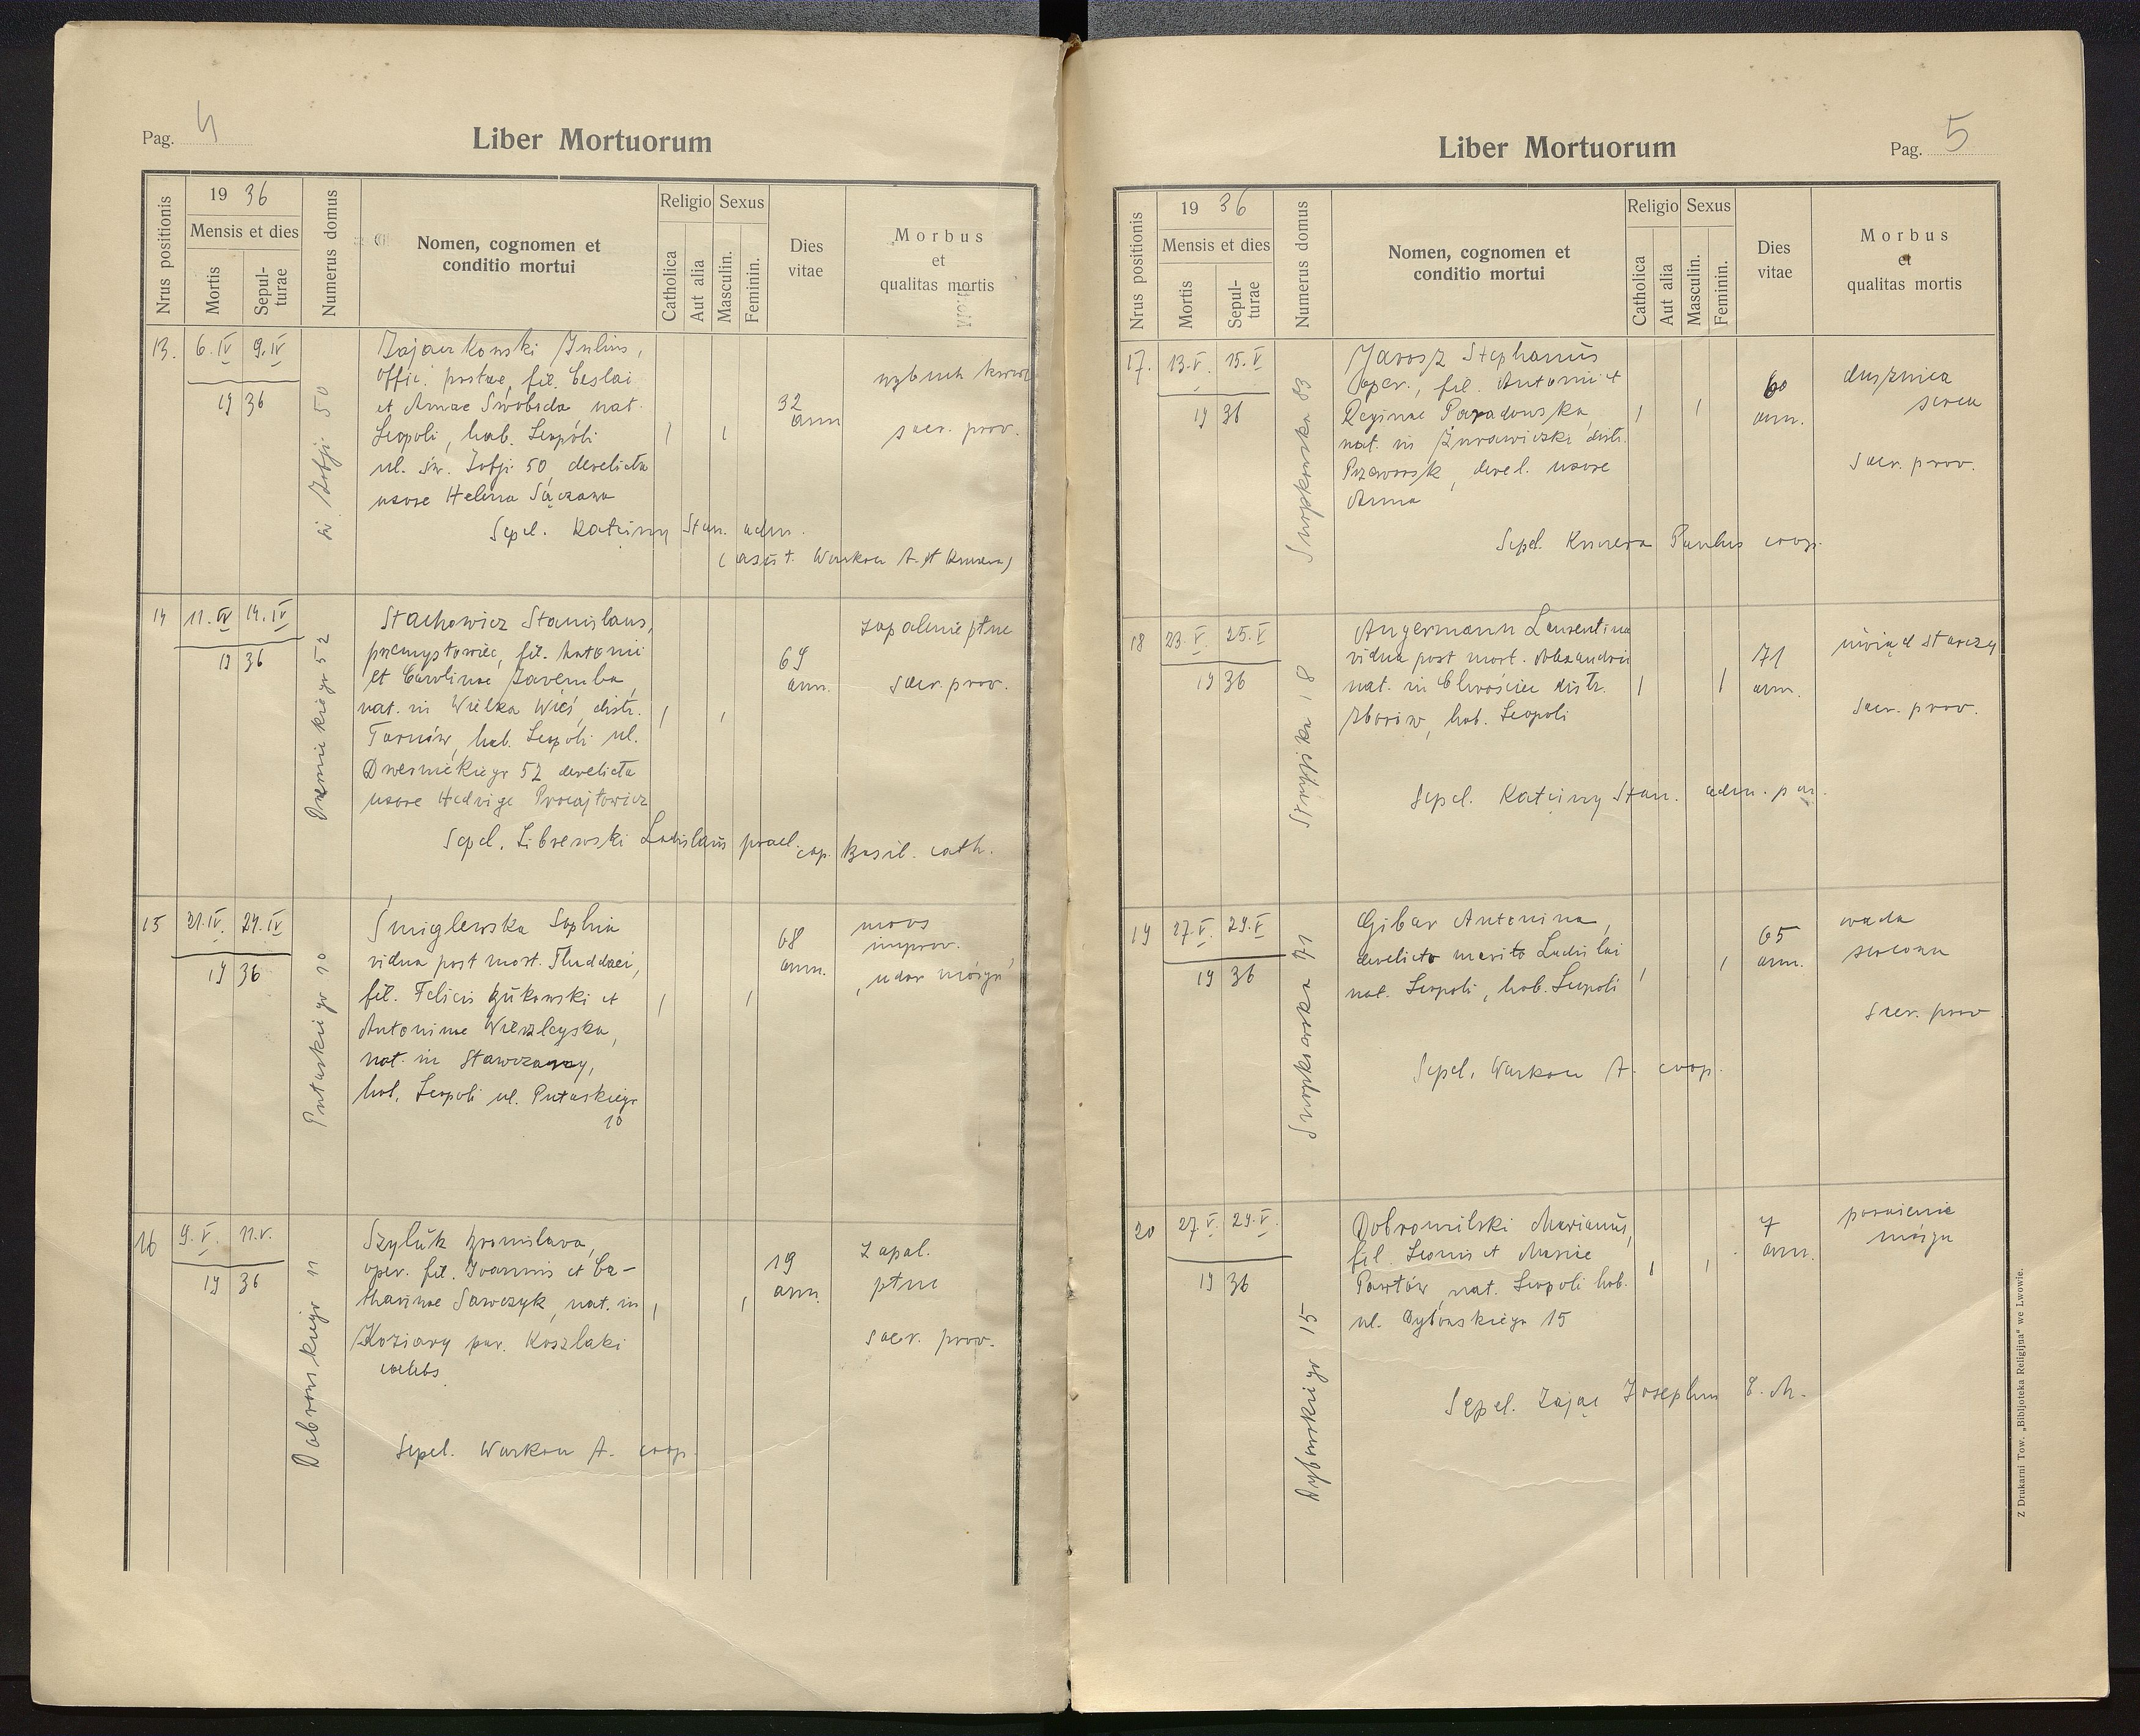 Pag. 4
Liber Mortuorum
Nrus positionis
19 36
Mensis et dies
Mortis
Sepul-
turae
Numerus domus
Nomen, cognomen et
conditio mortui
Religio
Catholica
Aut alia
Sexus
Masculin.
Feminin.
Dies
vitae
Morbus
et
qualitas mortis
13.
6. IV
9. IV
19 36
św. Zofji 50
Zajączkowski Julius,
offic. postae, fil. Ceslai
et Annae Swoboda nat.
Leopoli, hab. Leopoli
ul. św. Zofji 50, derelicta
uxore Helena
32
ann
wybuch krwi
sacr. prov.
Sepel. Stan. adm.
14
11. IV
14. IV
19 36
52
Stachowicz Stanislaus,
przemysłowiec, fil. Antonii
et Carolinae Zaremba,
nat. in Wielka Wieś, distr.
Tarnów, hab. Leopoli ul.
Dwernickiego 52 derelicta
uxore Hedvige
69
ann.
zapalenie płuc
sacr. prov.
Sepel. Ladislaus prael. cap. Basil. cath.
15
21. IV.
24. IV
19 36
Pułaskiego 10
Śmiglewska Sophia
vidua post mort. Thaddaei,
fil. Felicis Żukowski et
Antoninae
nat. in Stawczany,
hab. Leopoli ul. Pułaskiego
10
68
ann.
mors
improv.
"udar mózgu"
16
9. V.
11. V.
19 36
11
Szyluk Bronislava,
oper. fil. Joannis et Ca-
tharinae Sawczyk, nat. in
Koziary par. Koszlaki
caelebs
19
ann.
zapal.
płuc
sacr. prov.
Sepel. A. coop.
Liber Mortuorum
Pag. 5
Nrus positionis
19 36
Mensis et dies
Mortis
Sepul-
turae
Numerus domus
Nomen, cognomen et
conditio mortui
Religio
Catholica
Aut alia
Sexus
Masculin.
Feminin.
Dies
vitae
Morbus
et
qualitas mortis
17.
13. V.
15. V
19 36
Snopkowska 83
Jarosz Stephanus
oper., fil. Antonii et
Reginae Paradowska,
nat. in Żurawiczki distr.
Przeworsk, derel. uxore
Anna
60
ann.
dusznica
serca
sacr. prov.
Sepel. Paulus coop.
18
23. V.
25. V
19 36
Angermann Laurentina
vidua post mort. Alexandri
nat. in distr.
Zborów, hab. Leopoli
71
ann.
uwiąd starczy
sacr. prov.
Sepel. Stan. adm. par.
19
27. V.
29. V
19 36
Snopkowska 71
Gibar Antonina,
derelicto marito Ladislai
nat. Leopoli, hab. Leopoli
65
ann.
wada
sercowa
sacr. prov
Sepel. A. coop.
20
27. V.
29. V.
19 36
Dybowskiego 15
Dobromilski Marianus,
fil. Leonis et Mariae
nat. Leopoli hab.
ul. Dybowskiego 15
7
ann.
porażenie
mózgu
Sepel. Zając Josephus C. M.
Z Drukarni Tow. „Bibljoteka Religijna" we Lwowie.